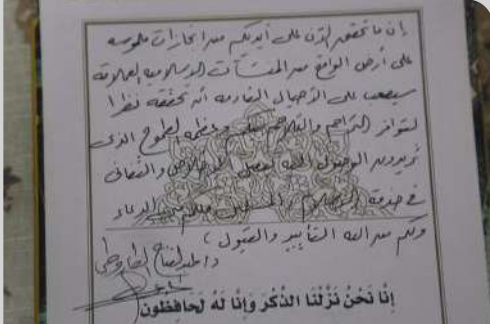 إن ما تحقق الآن على أيديكم من انجازات ملموسه
على أرض الواقع من المنشآت الإسلامية العملاقة
سيصعب على الأجيال القادمة أن تحققه نظرا
لتوافر التراحم والتلاحم وعظم الطموح الذى
تريدون الوصول إليه والثقافى
فى خدمة الإسلام الدعاء
ولكم من الله التأييد والقبول ،
إِنَّا نَحْنُ نَزَّلْنَا الذِّكْرَ وَإِنَّا لَهُ لَحَافِظُونَ